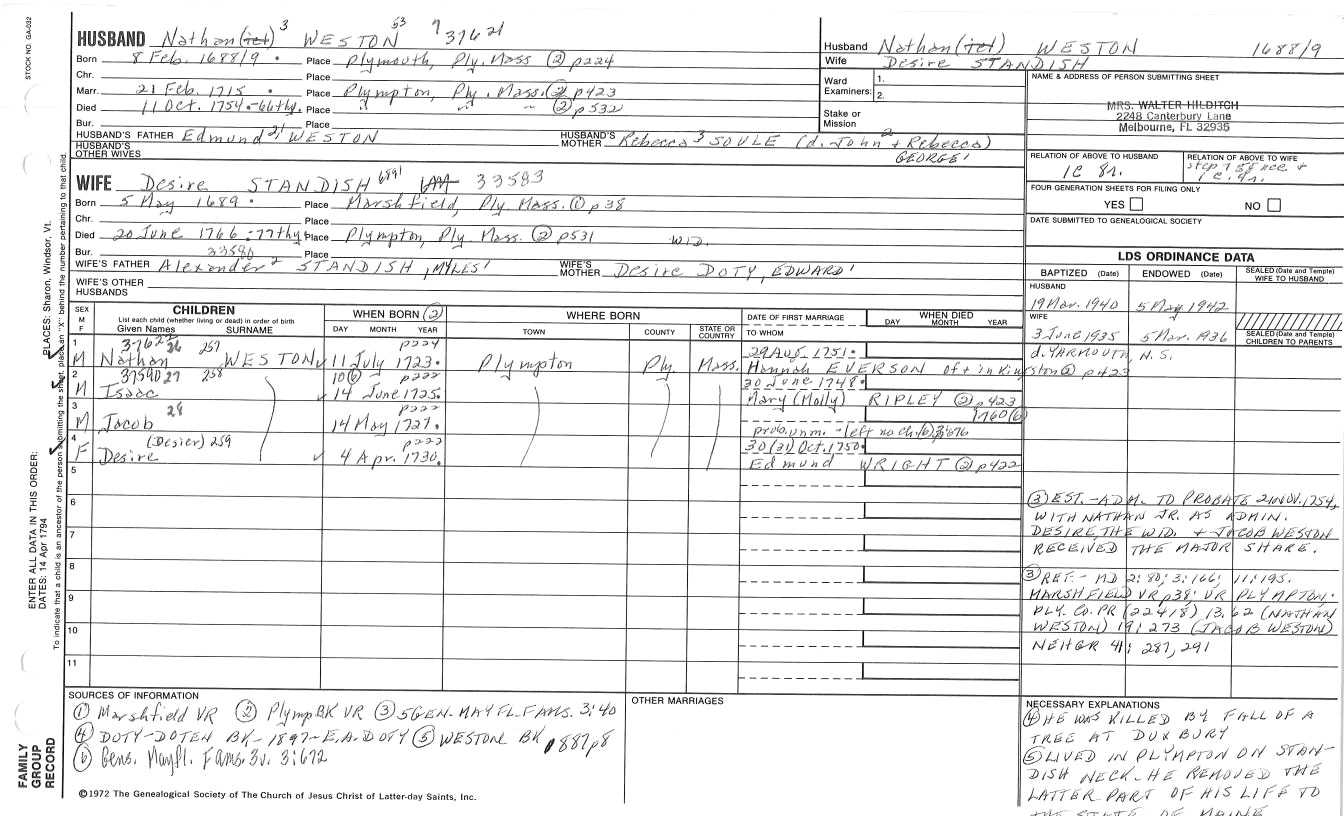 STOCK NO. GA-032
HUSBAND Nathan (tet) 3 WESTON 53 9 37621
Born 8 Feb. 1688/9 . Place Plymouth, Ply. Mass (2) p224
Chr. Place
Marr. 21 Feb. 1715 . Place Plympton, Ply. Mass. (2) p423
Died 11 Oct. 1754 - 66thy. Place " " " (2) p532
Bur. Place
HUSBAND'S FATHER Edmund 2, 1 WESTON HUSBAND'S MOTHER Rebecca 3 SOULE (d. John 2 + Rebecca)
HUSBAND'S OTHER WIVES GEORGE 1
WIFE Desire STANDISH 6891 33583
Born 5 May 1689 . Place Marshfield, Ply Mass. (1) p38
Chr. Place
Died 20 June 1766 - 77thy Place Plympton, Ply Mass. (2) p531 WID.
Bur. 33580 Place
WIFE'S FATHER Alexander 2 STANDISH, MYLES 1 WIFE'S MOTHER Desire DOTY, EDWARD 1
WIFE'S OTHER HUSBANDS
Husband Nathan (tet) WESTON 1688/9
Wife Desire STANDISH
Ward Examiners: 1. 2.
Stake or Mission
NAME & ADDRESS OF PERSON SUBMITTING SHEET
MRS. WALTER HILDITCH
2248 Canterbury Lane
Melbourne, FL 32935
RELATION OF ABOVE TO HUSBAND RELATION OF ABOVE TO WIFE
1C 8r.
FOUR GENERATION SHEETS FOR FILING ONLY
YES NO
DATE SUBMITTED TO GENEALOGICAL SOCIETY
LDS ORDINANCE DATA
BAPTIZED (Date) ENDOWED (Date) SEALED (Date and Temple) WIFE TO HUSBAND
HUSBAND
19 Mar. 1940 5 May 1942
WIFE
3 June 1935 5 Mar. 1936 SEALED (Date and Temple) CHILDREN TO PARENTS
SEX M F CHILDREN WHEN BORN (2) WHERE BORN DATE OF FIRST MARRIAGE WHEN DIED
List each child (whether living or dead) in order of birth
Given Names SURNAME DAY MONTH YEAR TOWN COUNTY STATE OR COUNTRY TO WHOM DAY MONTH YEAR
1 37625 26 257 p224 29 Aug. 1751. d. YARMOUTH, N.S.
M Nathan WESTON 11 July 1723. Plympton Ply. Mass. Hannah EVERSON of + in Kingston (2) p423
2 37590 27 258 10 (6) p222 20 June 1748.
M Isaac 14 June 1725. Mary (Molly) RIPLEY (2) p423
3 28 p222 1760 (6)
M Jacob 14 May 1727. prob. unm. - left no ch. (6) 3:676
4 (Desier) 259 p222 30 (31) Oct. 1750.
F Desire 4 Apr. 1730. Edmund WRIGHT (2) p422
5
6
7
8
9
10
11
(3) EST. - ADM. TO PROBATE 2 NOV. 1754,
WITH NATHAN JR. AS ADMIN.
DESIRE, THE WID. + JACOB WESTON
RECEIVED THE MAJOR SHARE.
(3) REF. - MD 2:80; 3:166; 11:195.
MARSHFIELD VR p38; VR PLYMPTON;
PLY. CO. PR (22418) 13:62 (NATHAN
WESTON) 19:273 (JACOB WESTON)
NEHGR 41: 287, 291
SOURCES OF INFORMATION
(1) Marshfield VR (2) Plymp BK VR (3) 5 GEN. MAYFL. FAMS. 3:40
(4) DOTY-DOTEN BK - 1897 - E.A. DOTY (5) WESTON BK 1887 p8
(6) Gens. Mayfl. Fams. 3v. 3:672
OTHER MARRIAGES
NECESSARY EXPLANATIONS
(4) HE WAS KILLED BY FALL OF A
TREE AT DUXBURY
(5) LIVED IN PLYMPTON ON STAN-
DISH NECK. HE REMOVED THE
LATTER PART OF HIS LIFE TO
THE STATE OF MAINE
©1972 The Genealogical Society of The Church of Jesus Christ of Latter-day Saints, Inc.
FAMILY GROUP RECORD
ENTER ALL DATA IN THIS ORDER:
DATES: 14 Apr 1794
PLACES: Sharon, Windsor, Vt.
To indicate that a child is an ancestor of the person submitting the sheet, place an "X" behind the number pertaining to that child.